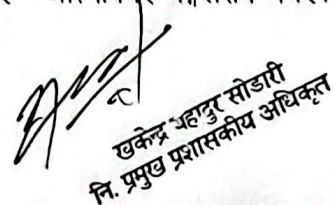 खकेन्द्र बहादुर सोडारी
नि. प्रमुख प्रशासकीय अधिकृत